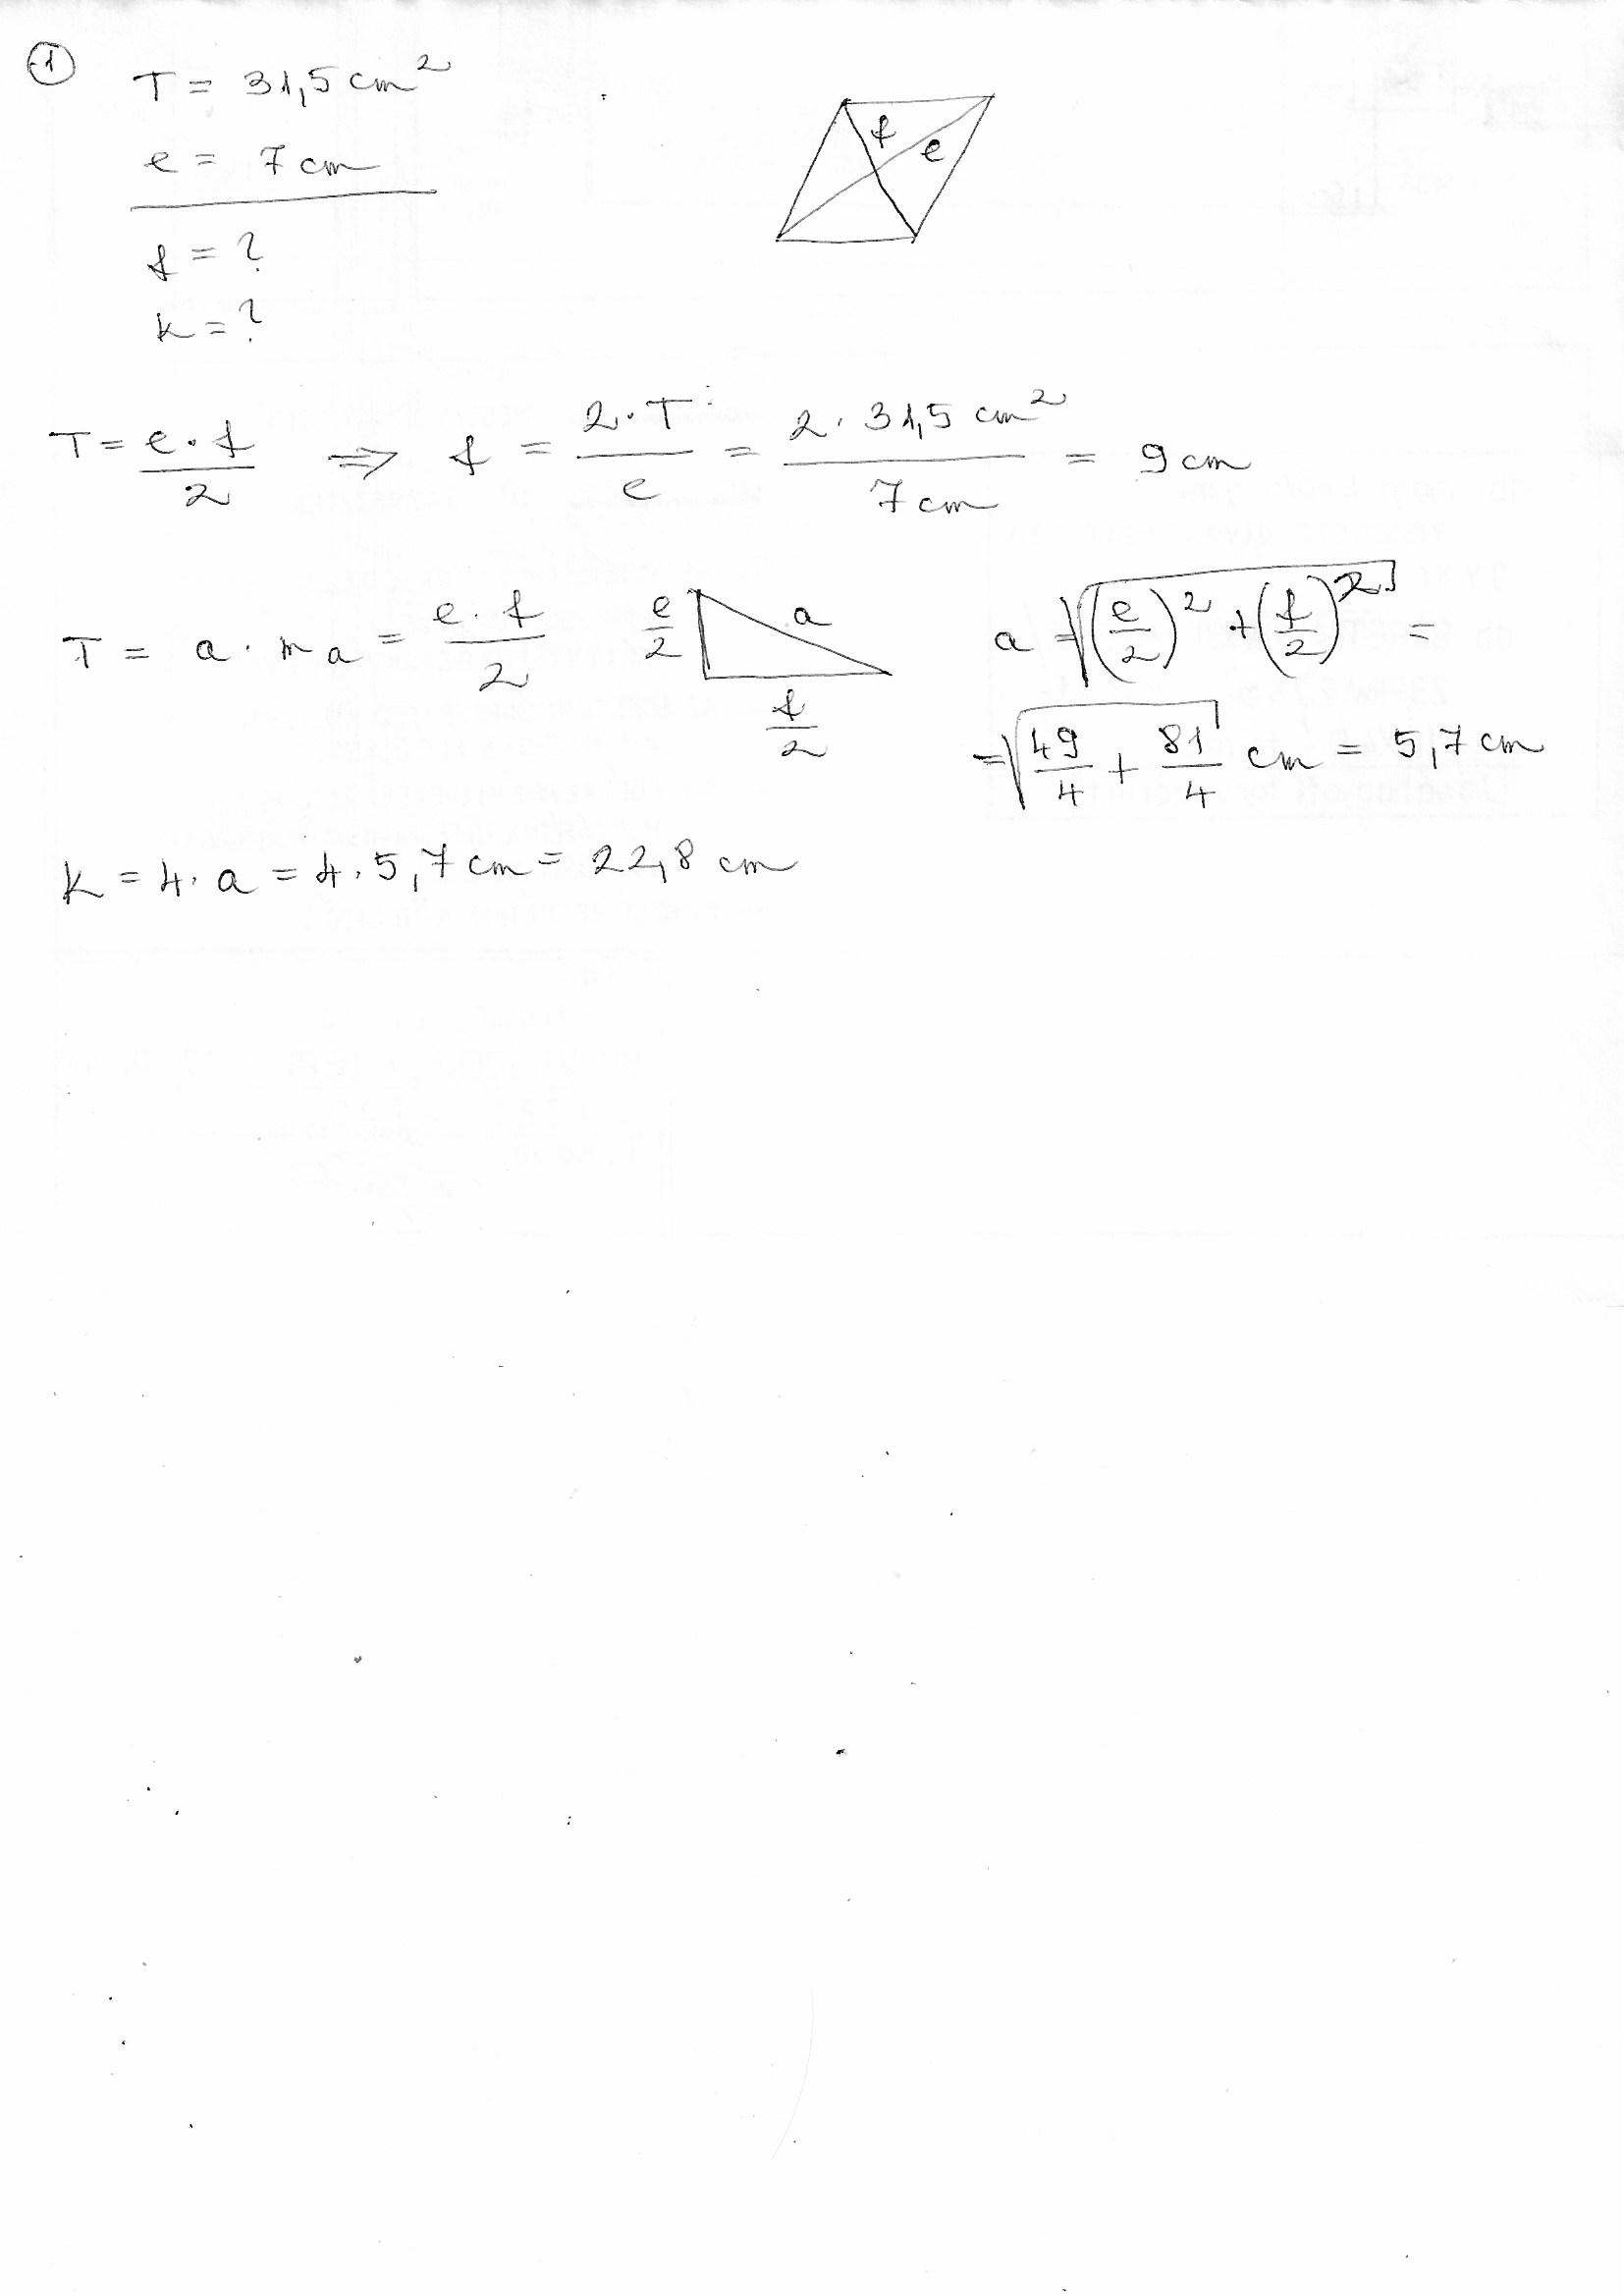 1
T = 31,5 cm²
e = 7 cm
f = ?
k = ?
f e
T = e · f / 2 ⇒ f = 2 · T / e = 2 · 31,5 cm² / 7 cm = 9 cm
T = a · m a = e · f / 2
e/2 a f/2
a = √((e/2)² + (f/2)²) =
= √(49/4 + 81/4) cm = 5,7 cm
k = 4 · a = 4 · 5,7 cm = 22,8 cm